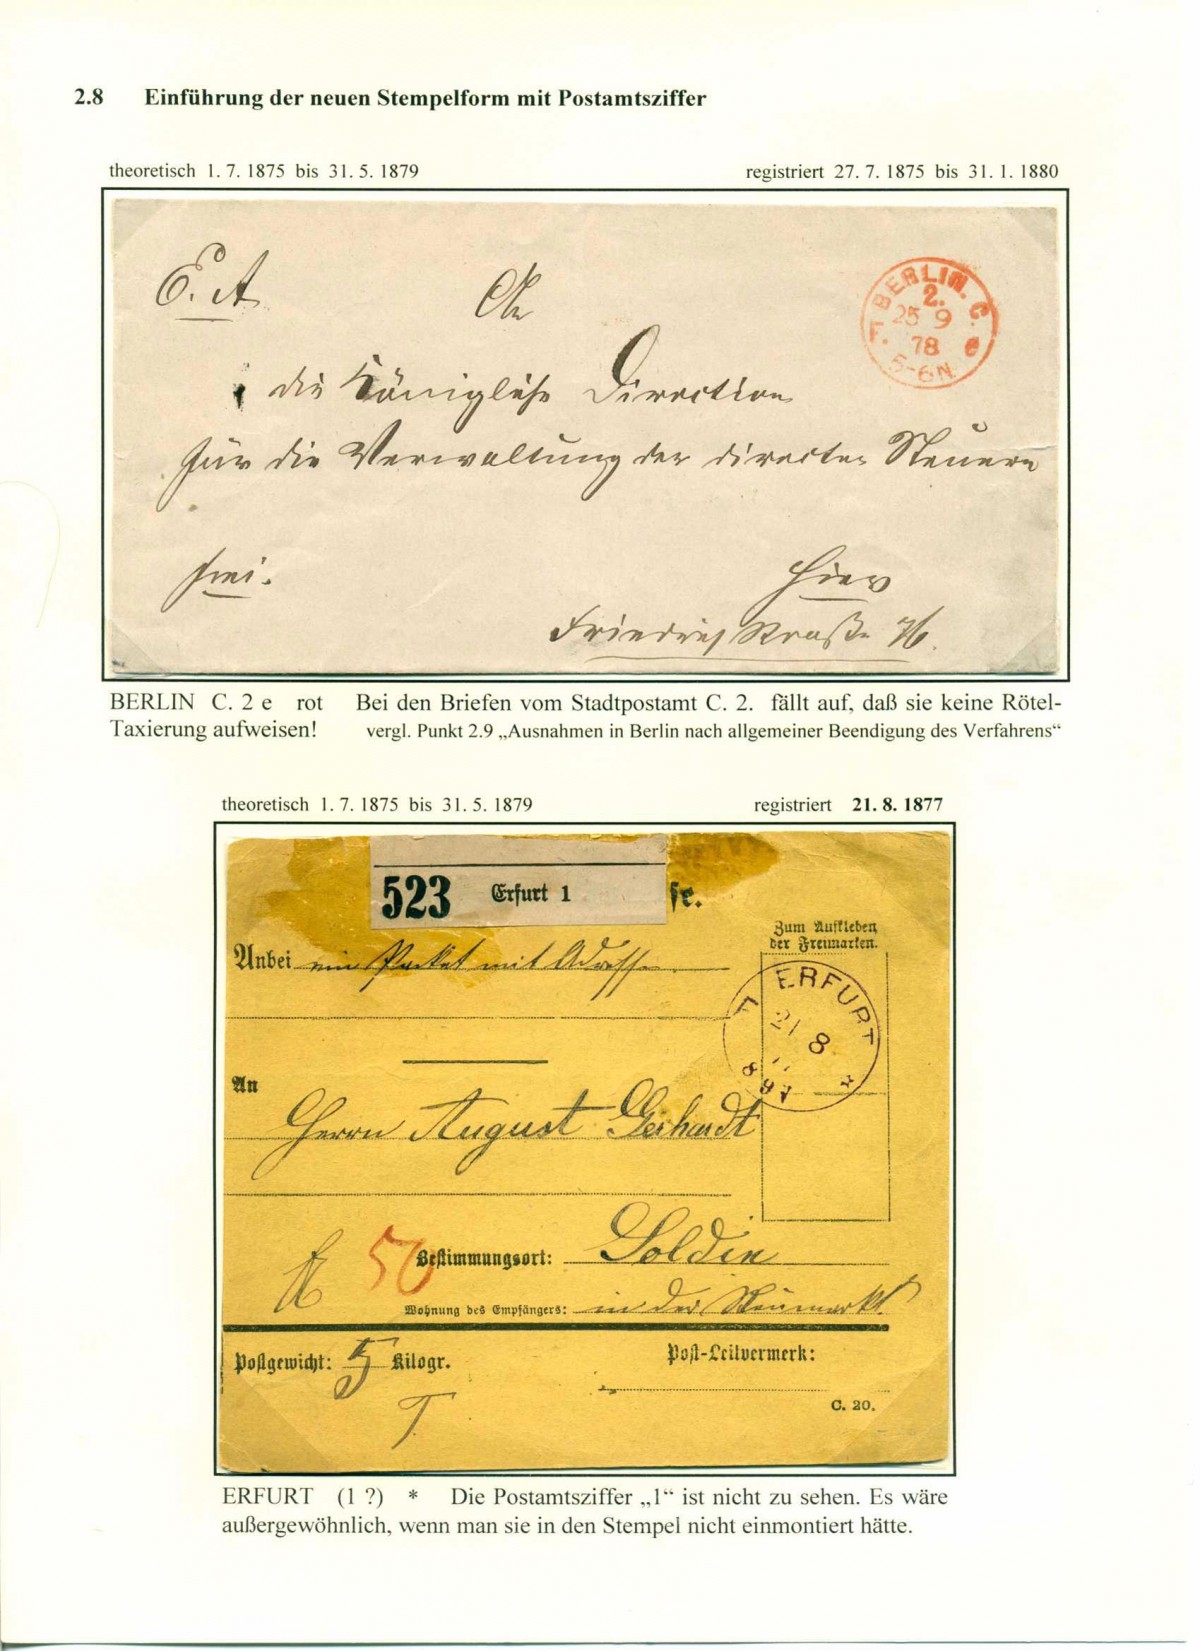 2.8 Einführung der neuen Stempelform mit Postamtsziffer
theoretisch 1. 7. 1875 bis 31. 5. 1879 registriert 27. 7. 1875 bis 31. 1. 1880
E. A
An
die Königliche Direction
für die Verwaltung der directen Steuern
frei.
hier
Friedrichstraße 76.
F. BERLIN. C. e
2.
25 9
78
5-6N
BERLIN C. 2 e rot Bei den Briefen vom Stadtpostamt C. 2. fällt auf, daß sie keine Rötel-
Taxierung aufweisen! vergl. Punkt 2.9 „Ausnahmen in Berlin nach allgemeiner Beendigung des Verfahrens“
theoretisch 1. 7. 1875 bis 31. 5. 1879 registriert 21. 8. 1877
523 Erfurt 1
Zum Aufkleben
der Freimarken.
Anbei ein Packet mit Adresse.
F ERFURT *
21 8
An
Herrn August Gerhardt
50
Bestimmungsort: Soldin
Wohnung des Empfängers: in der Neumarkt.
Postgewicht: 5 Kilogr.
Post-Leitvermerk:
C. 20.
ERFURT (1 ?) * Die Postamtsziffer „1“ ist nicht zu sehen. Es wäre
außergewöhnlich, wenn man sie in den Stempel nicht einmontiert hätte.